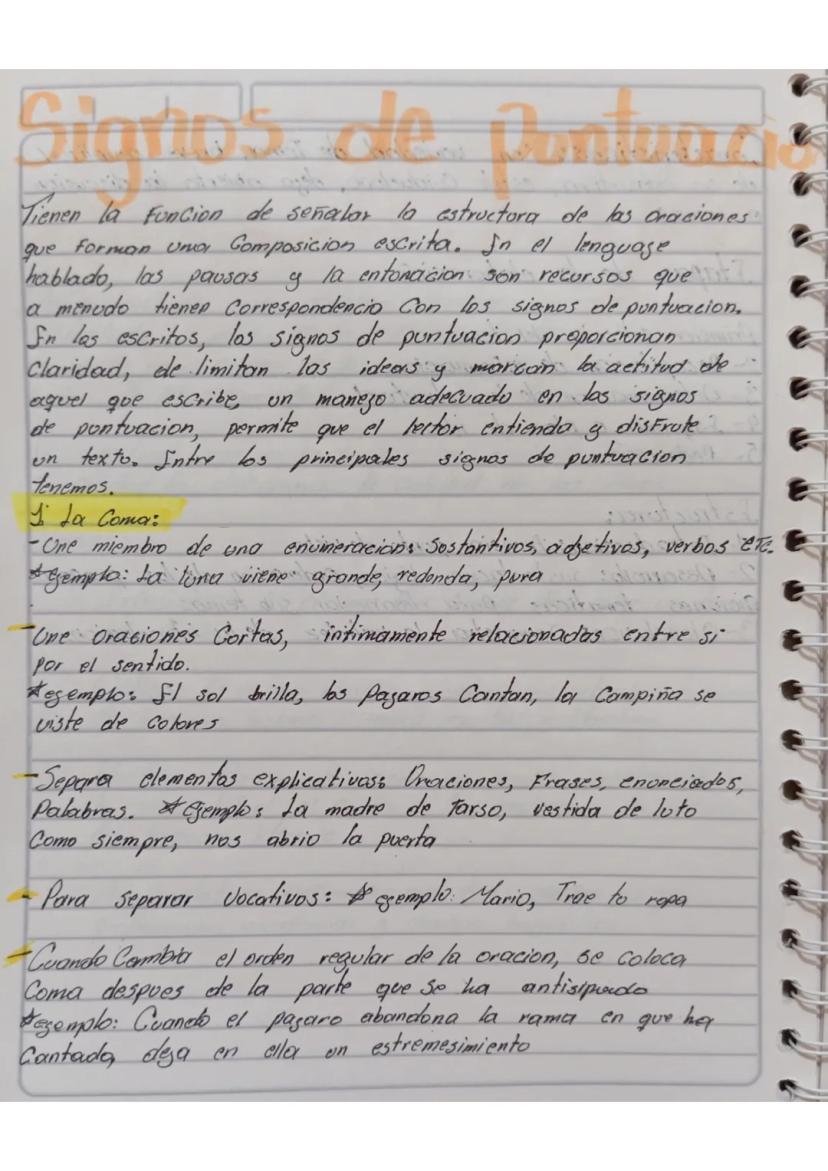 Signos de puntuacio
Tienen la Funcion de señalar la estructura de las oraciones
que Forman una Composicion escrita. En el lenguage
hablado, las pausas y la entonacion son recursos que
a menudo tienen Correspondencia Con los signos de puntuacion.
En los escritos, los signos de puntuacion proporcionan
Claridad, de limitan las ideas y marcan la actitud de
aquel que escribe, un manejo adecuado en los signos
de puntuacion, permite que el lector entienda y disfrute
un texto. Entre los principales signos de puntuacion
tenemos.
1. La Coma:
- Une miembro de una enumeracion: Sostantivos, adjetivos, verbos etc.
* ejemplo: La luna viene grande, redonda, pura
- Une oraciones Cortas, intimamente relacionadas entre si
por el sentido.
* ejemplo: El sol brilla, los pajaros Cantan, la Campiña se
viste de Colores
- Separa elementos explicativas: Oraciones, Frases, enunciados,
Palabras. * ejemplo: La madre de Tarso, vestida de luto
Como siempre, nos abrio la puerta
- Para separar Vocativos: * ejemplo: Mario, Trae tu ropa
- Cuando Cambia el orden regular de la oracion, se coloca
Coma despues de la parte que se ha antisipado
* ejemplo: Cuando el pajaro abandona la rama en que ha
Cantado, deja en ella un estremesimiento